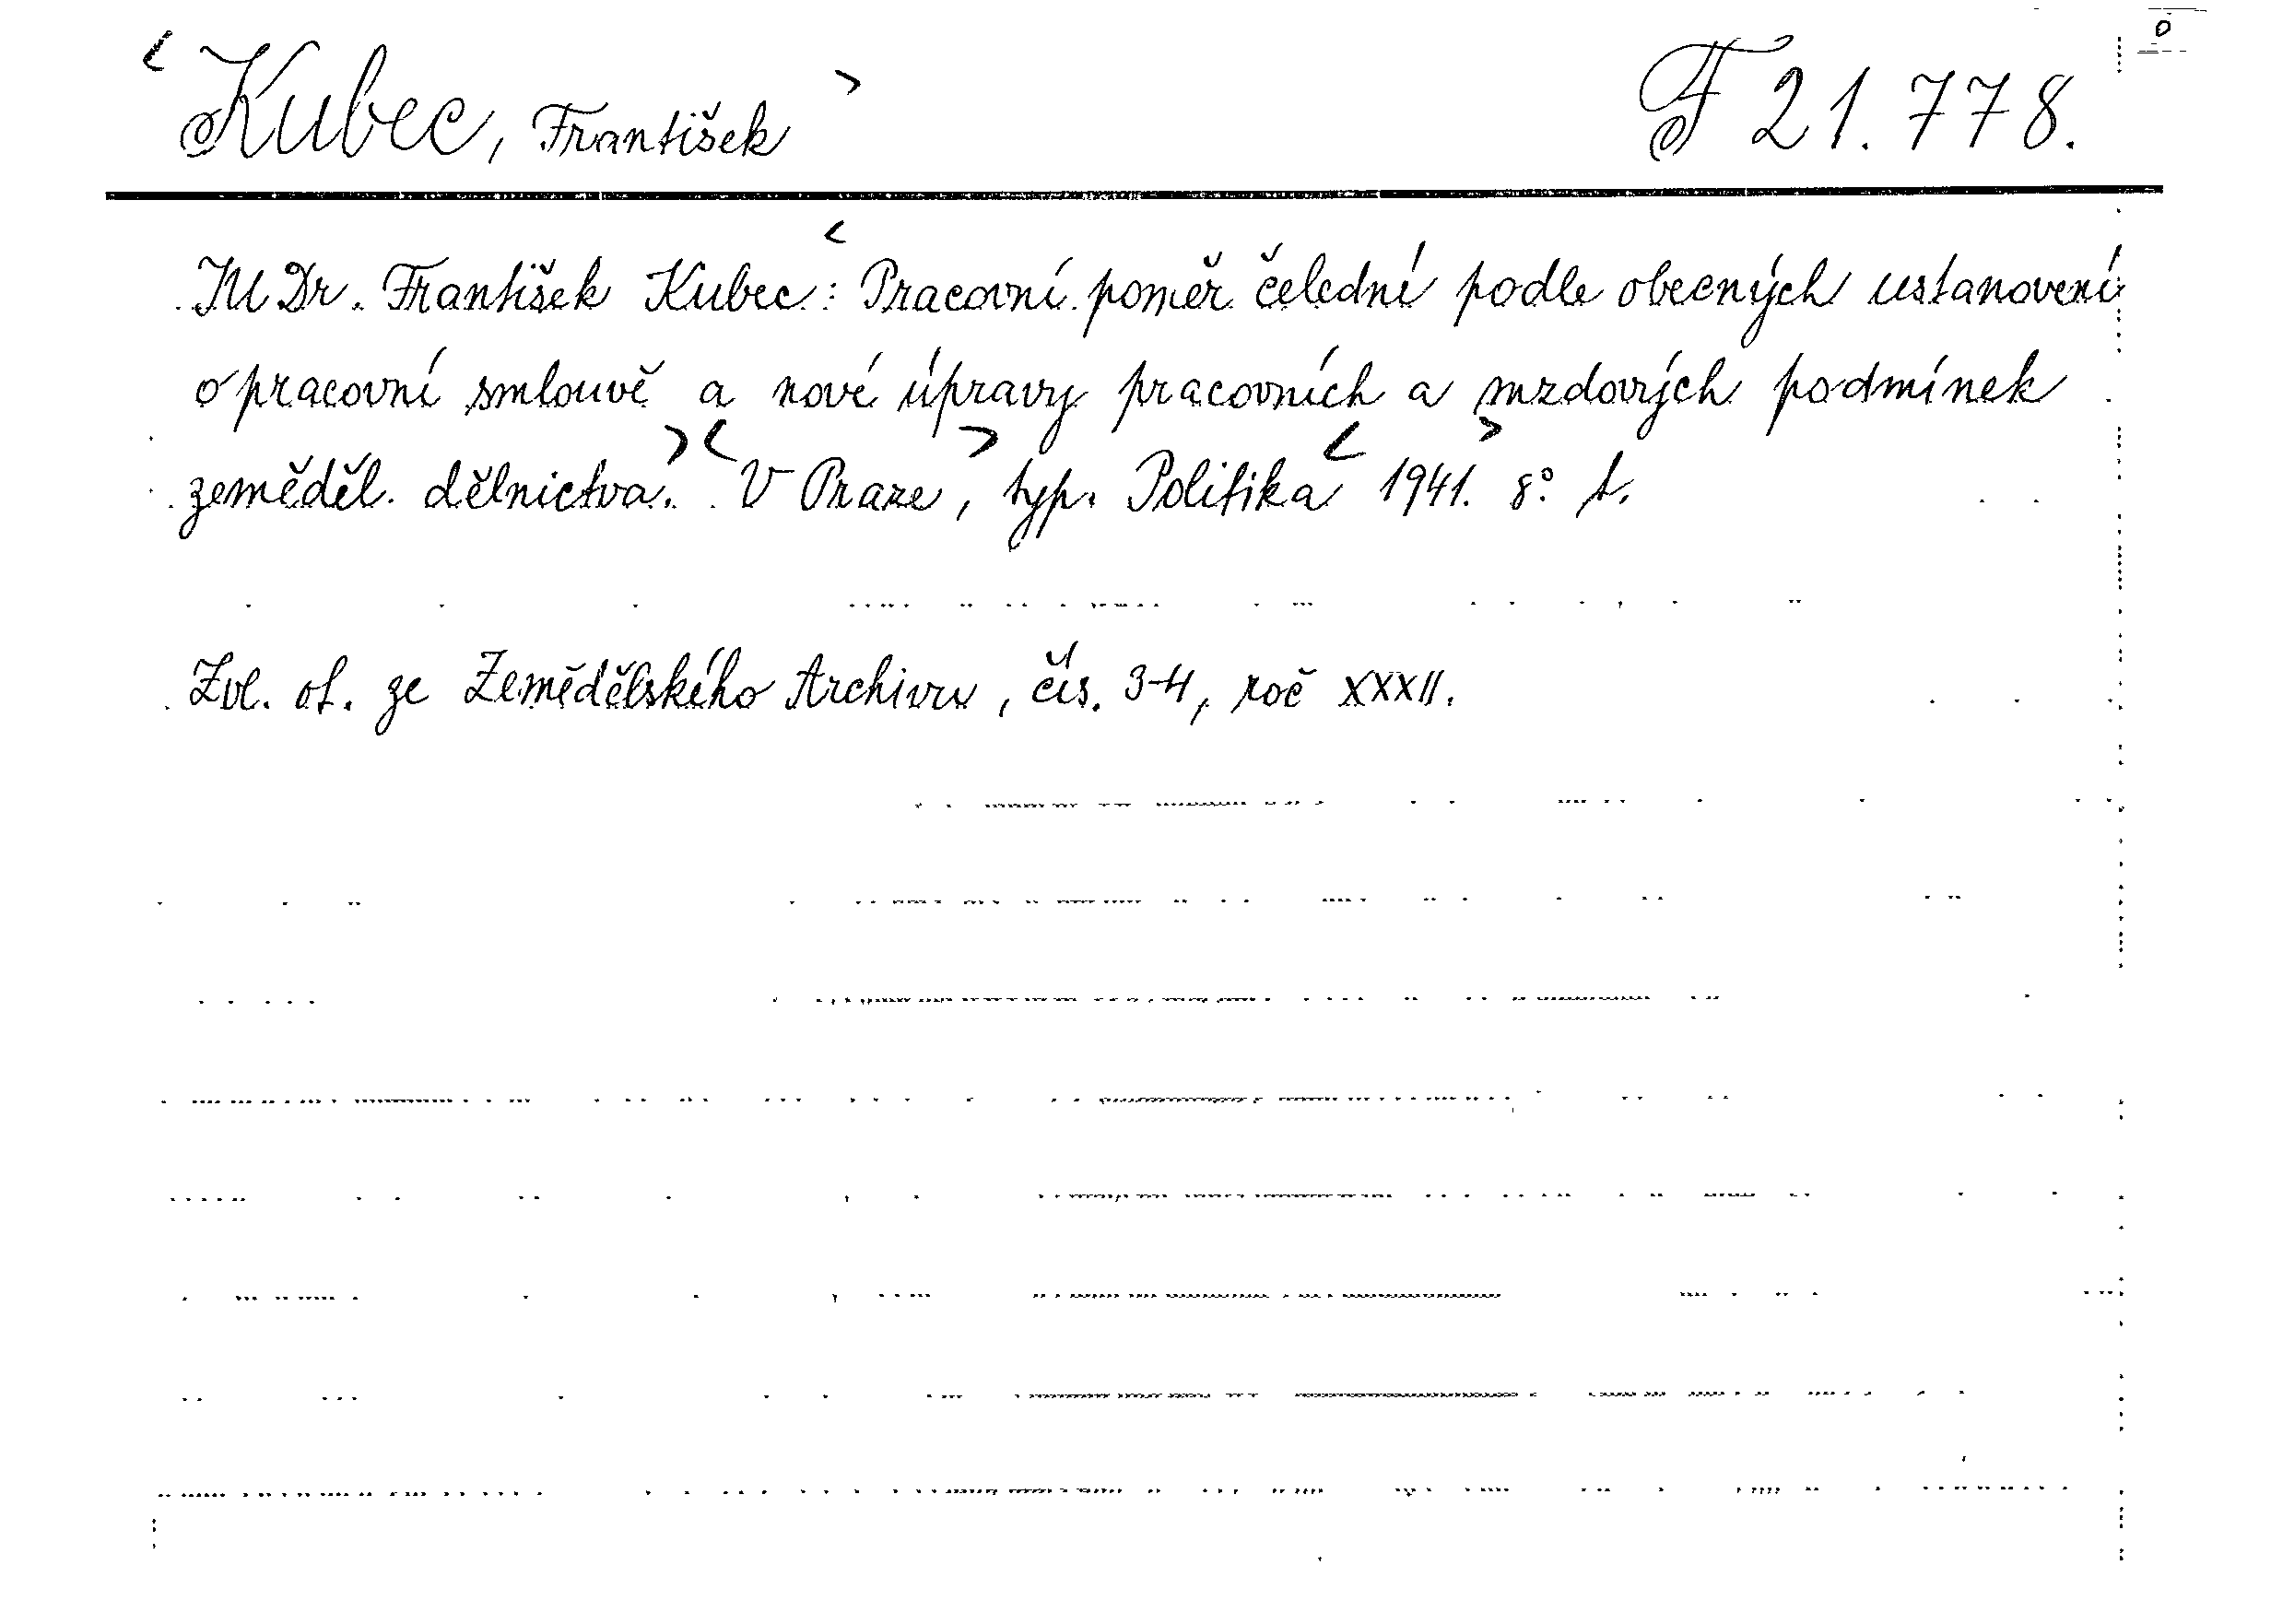 <Kubec, František> F 21.778.
JUDr. František Kubec: <Pracovní poměr čelední podle obecných ustanovení
o pracovní smlouvě a nové úpravy pracovních a mzdových podmínek
zeměděl. dělnictva.> <V Praze>, typ. Politika <1941.> 8° 1.
Zvl. ot. ze Zemědělského Archivu, čís. 3-4, roč XXXII.